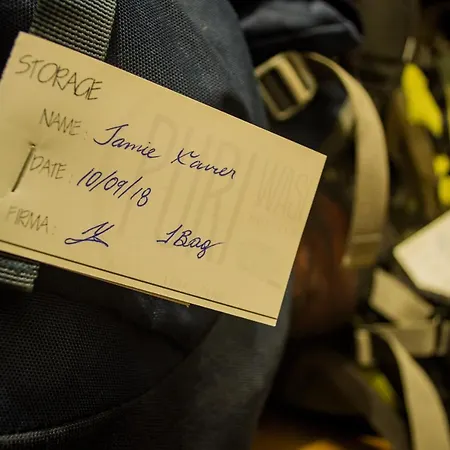 STORAGE
NAME: Jamie Xavier
DATE: 10/09/18
FIRMA: 1 Bag